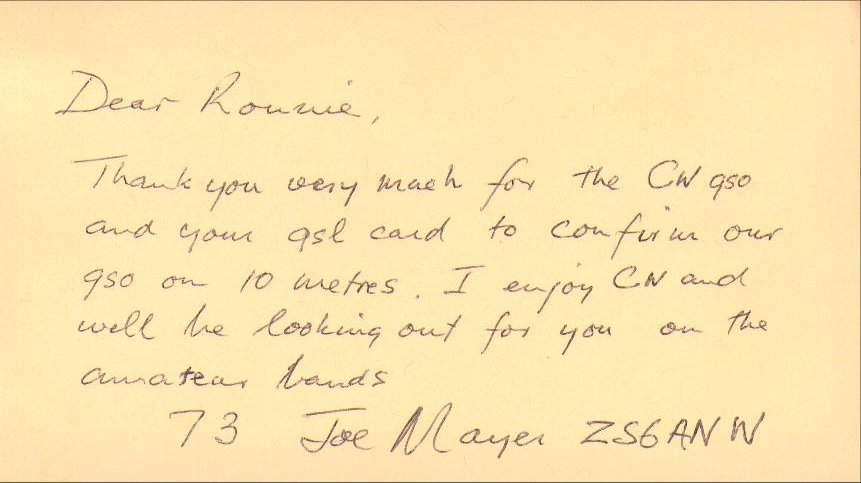 Dear Ronnie,
Thank you very much for the CW qso
and your qsl card to confirm our
qso on 10 metres. I enjoy CW and
will be looking out for you on the
amateur bands
73 Joe Mayer ZS6ANW